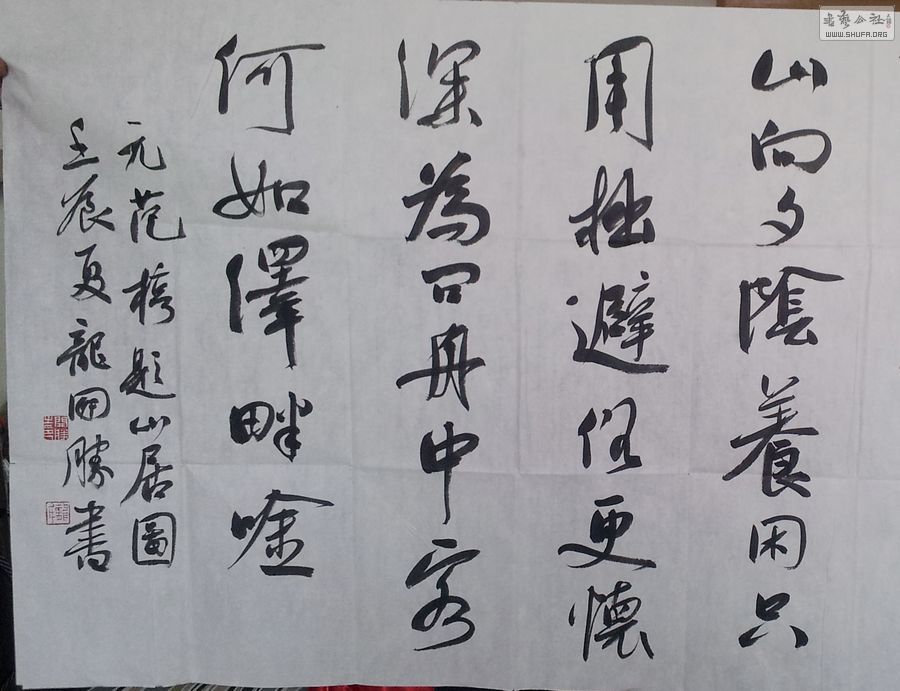 山向夕陰養闲只
用拙避俗更懷
深為问舟中客
何如澤畔唫
元范梈題山居圖
壬辰夏龍開勝書
書藝公社
WWW.SHUFA.ORG